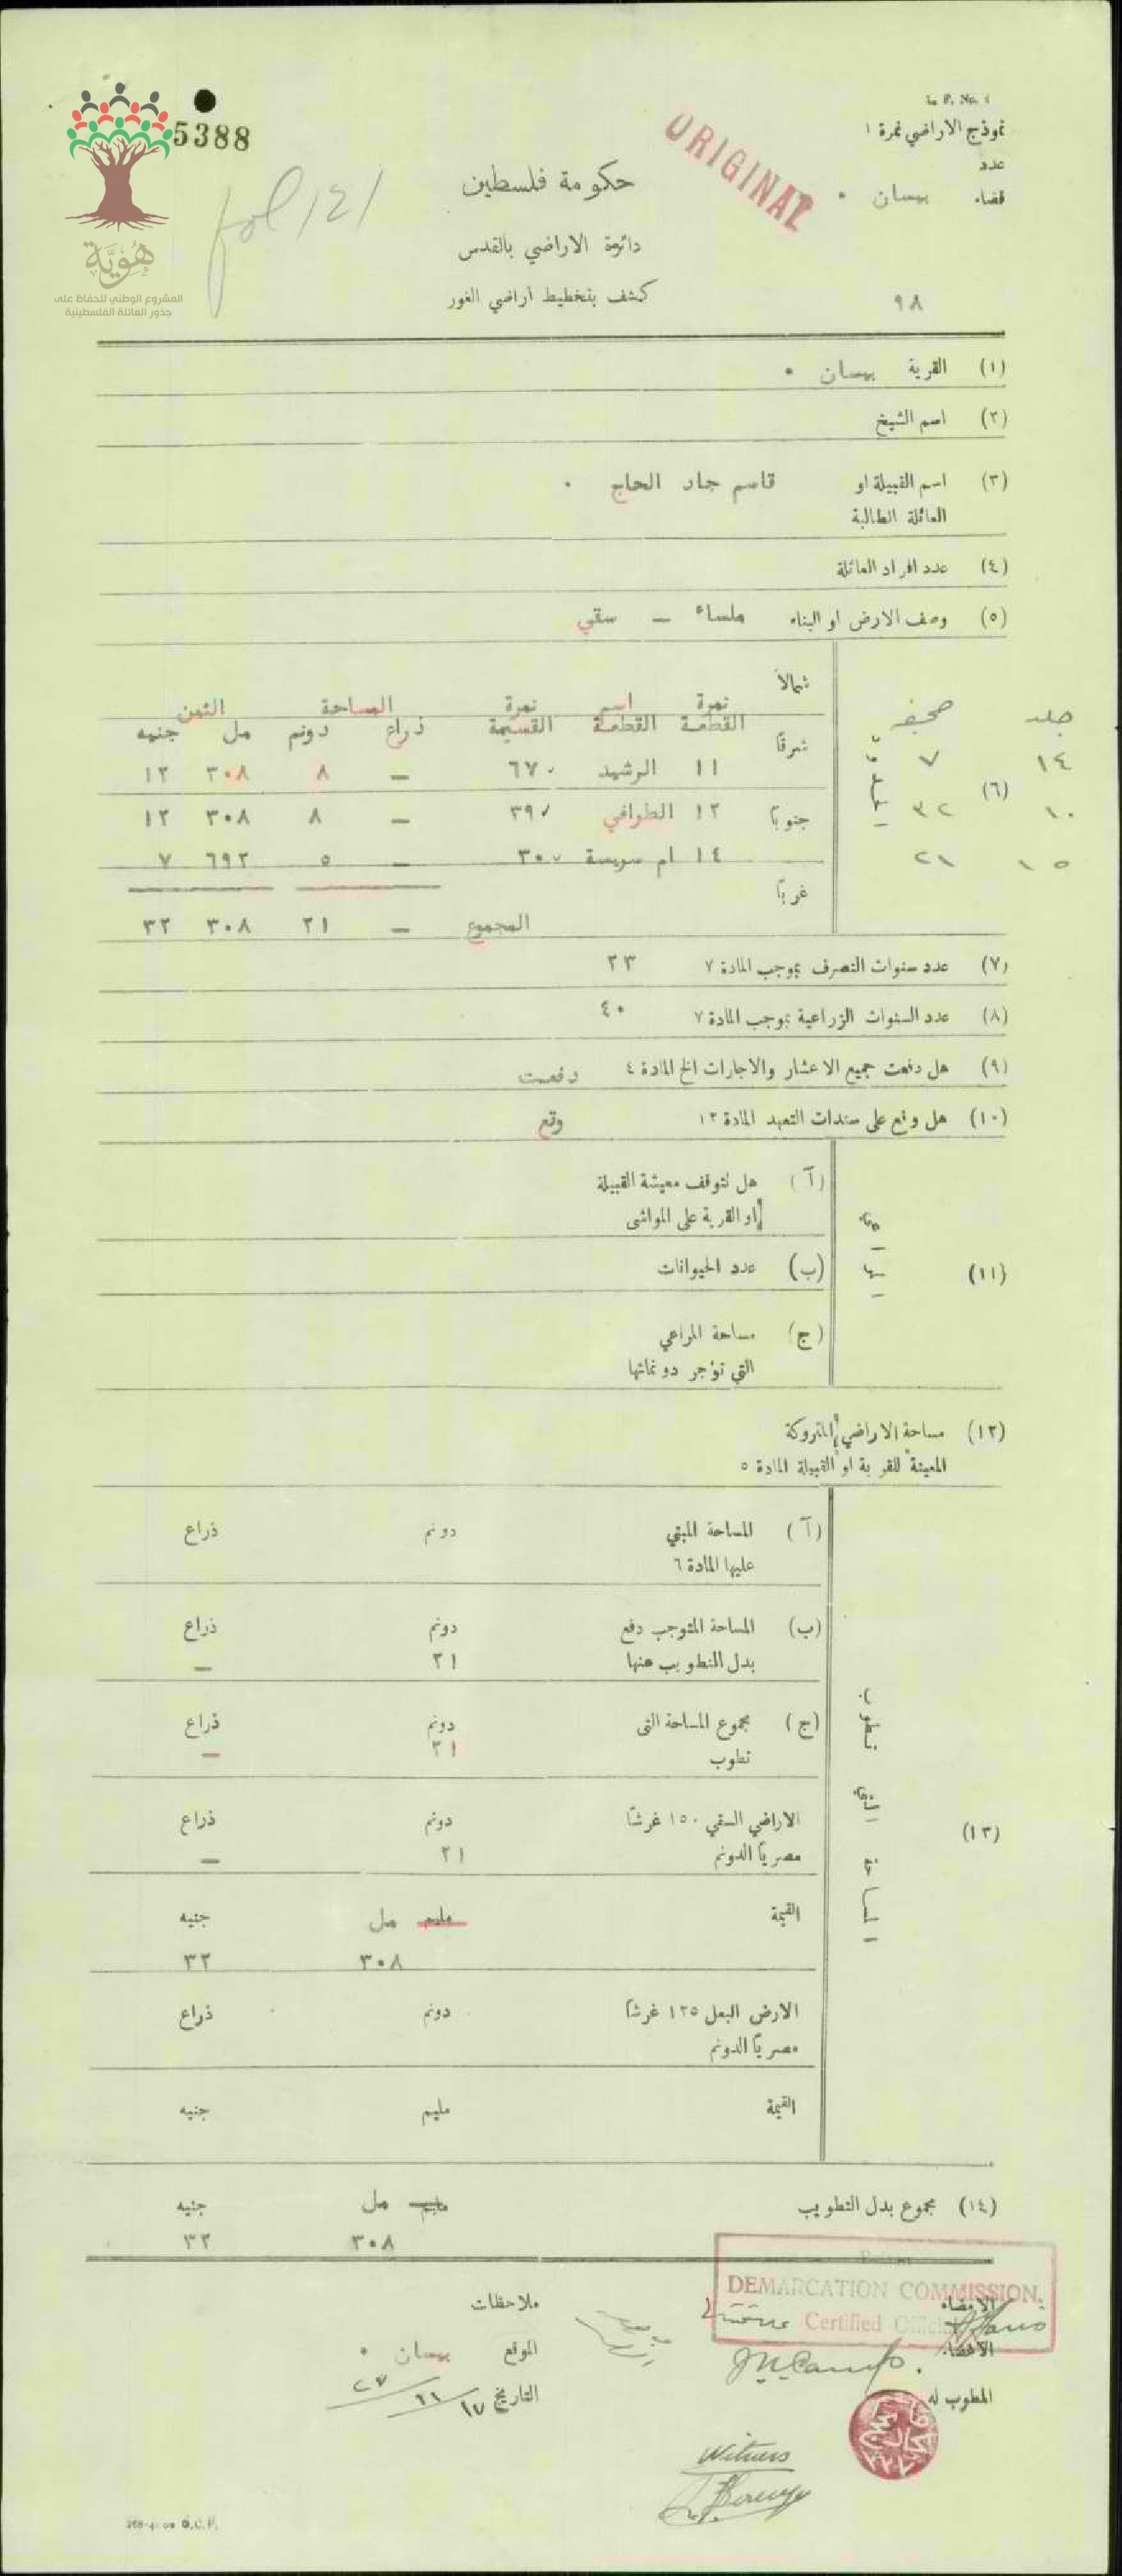 L. P. No. 1
نموذج الاراضي نمرة ١
عدد
قضاء بيسان ٠
ORIGINAL
5388
fol 121
هُوِيَّة
المشروع الوطني للحفاظ على
جذور العائلة الفلسطينية
حكومة فلسطين
دائرة الاراضي بالقدس
كشف بتخطيط اراضي الغور
٩٨
(١) القرية بيسان ٠
(٢) اسم الشيخ
(٣) اسم القبيلة او العائلة الطالبة قاسم جاد الحاج ٠
(٤) عدد افراد العائلة
(٥) وصف الارض او البناء ملساء — سقي
(٦)
جلد صحيفه
١٤ ٧
١٠ ٣٢
١٥ ٢١
شمالاً
شرقاً
جنوباً
غرباً
نمرة القطعة اسم القطعة نمرة القسيمة المساحة الثمن
ذراع دونم مل جنيه
١١ الرشيد ٦٧ — ٨ ٣٠٨ ١٢
١٢ الطوافي ٣٩ — ٨ ٣٠٨ ١٢
١٤ ام سريسة ٣٠ — ٥ ٦٩٢ ٧
المجموع — ٢١ ٣٠٨ ٣٢
(٧) عدد سنوات التصرف بموجب المادة ٧ ٢٣
(٨) عدد السنوات الزراعية بموجب المادة ٧ ٤٠
(٩) هل دفعت جميع الاعشار والاجارات الخ المادة ٤ دفعت
(١٠) هل وقع على سندات التعهد المادة ١٢ وقع
(١١)
(آ) هل تتوقف معيشة القبيلة
او القرية على المواشي
(ب) عدد الحيوانات
(ج) مساحة المراعي
التي تؤجر دونماتها
(١٢) مساحة الاراضي المتروكة
المعينة للقرية او القبيلة المادة ٥
(١٣) المساحة التي تطوب
(آ) المساحة المبني دونم ذراع
عليها المادة ٦
(ب) المساحة المتوجب دفع دونم ذراع
بدل التطويب عنها ٢١ —
(ج) مجموع المساحة التي دونم ذراع
تطوب ٢١ —
الاراضي السقي ١٥٠ غرشاً دونم ذراع
مصرياً الدونم ٢١ —
القيمة مليم مل جنيه
٣٠٨ ٣٢
الارض البعل ١٢٥ غرشاً دونم ذراع
مصرياً الدونم
القيمة مليم جنيه
(١٤) مجموع بدل التطويب مليم مل جنيه
٣٠٨ ٣٢
DEMARCATION COMMISSION.
Certified Official
الامضاء
الامضاء
المطوب له
ملاحظات
الموقع بيسان ٠
التاريخ ١٧/١١/٢٧
Witness